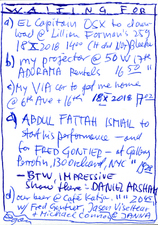 WAITING FOR
a) EL CAPITAN OSX to down
load @ Lillian Forman's 259
18 X 2018 1400
b) my projector @ 50 W 17th
ADORAMA Rentals 1650
c) My VIA car to get me home
@ 6th Ave + 16th 18X 2018
d) ABDUL FATTAH ISMAIL to
start his performance - and
for FRED GONTIER - at Gallery
130 Orchard, NYC
- BTW, IMPRESSIVE
show there: DANIEL ARSHAM
our beer @ Café Katja, 2045
w/ Fred Gontier, Jason
+ Michael